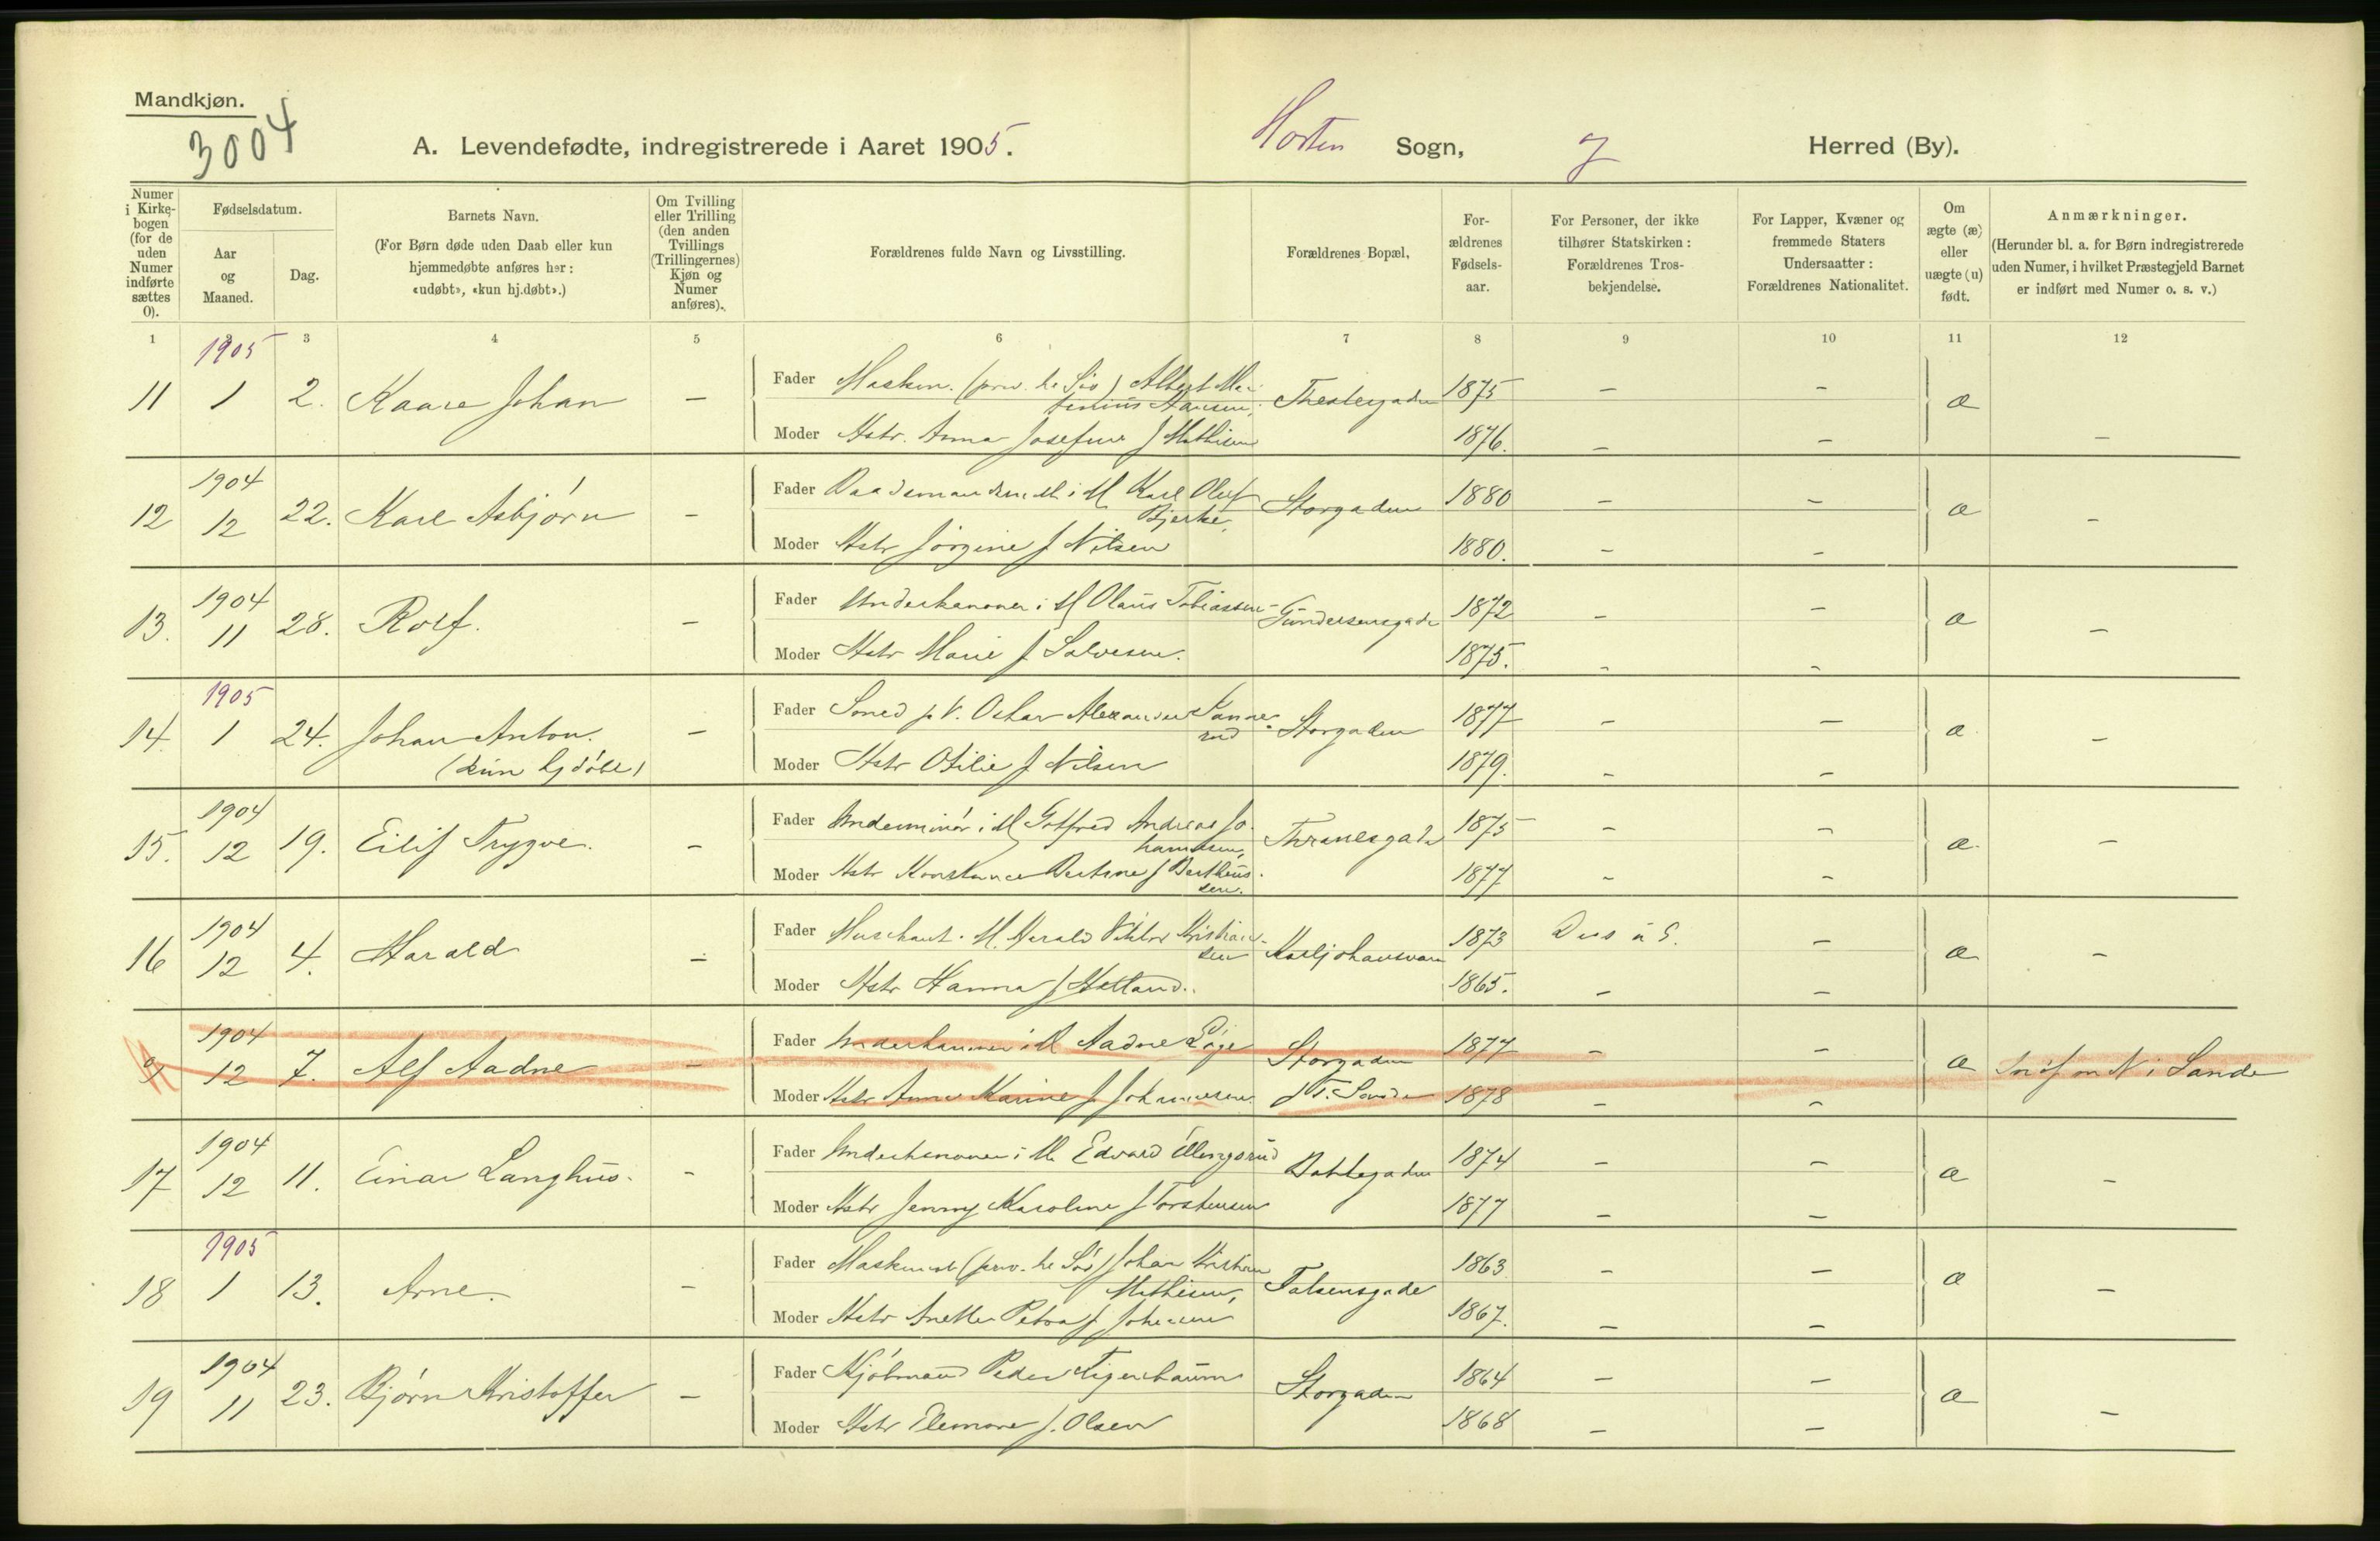 Mandkjøn.
3004
A. Levendefødte, indregistrerede i Aaret 1905. Horten Sogn, Herred (By).
Numer i Kirke-bogen (for de uden Numer indførte sættes 0).
Fødselsdatum.
Aar og Maaned.
Dag.
Barnets Navn.
(For Børn døde uden Daab eller kun hjemmedøbte anføres her: «udøbt», «kun hj.døbt».)
Om Tvilling eller Trilling (den anden Tvillings (Trillingernes) Kjøn og Numer anføres).
Forældrenes fulde Navn og Livsstilling.
Forældrenes Bopæl.
For-ældrenes Fødsels-aar.
For Personer, der ikke tilhører Statskirken: Forældrenes Tros-bekjendelse.
For Lapper, Kvæner og fremmede Staters Undersaatter: Forældrenes Nationalitet.
Om ægte (æ) eller uægte (u) født.
Anmærkninger.
(Herunder bl. a. for Børn indregistrerede uden Numer, i hvilket Præstegjeld Barnet er indført med Numer o. s. v.)
1 2 3 4 5 6 7 8 9 10 11 12
1905
11 1 2. Kaare Johan — Fader Maskin. Albert Mar- Theatergaden 1875 — — æ
tinius Hansen,
Moder Hstr. Anna Josefine f Mathisen 1876. — — —
1904
12 12 22. Karl Asbjørn — Fader Baadsmand i M Karl Oluf Storgaden 1880 — — æ —
Bjerke,
Moder Hstr Jørgine f Nilsen 1880. — —
1904
13. 11 28. Rolf. — Fader Underkanoner i M Olaus Tobiassen Gundersensgade 1872 — — æ —
Moder Hstr Marie f Salvesen. 1875. — —
1905
14. 1 24. Johan Anton. — Fader Smed p V. Oskar Alexander Storgaden 1877 — — æ —
(kun hjdøbt)
Moder Hstr Otilie f Nilsen 1879. — —
1904
15. 12 19. Eilif Trygve. — Fader Underminør i M Gotfred Andreas Jo- Thranesgade 1875 — — æ —
hannesen,
Moder Hstr Konstance Bertine f Bertheus- 1877 — —
sen.
1904
16 12 4. Harald — Fader M. Harald Viktor Kristian- Karljohansvern 1873 — æ —
sen
Moder Hstr Hanna f 1865. — —
1904
9 12 7. Alf Aadne — Fader Underkanoner i M Aadne Storgaden 1877 — — æ Indf m N i Sande
Moder Hstr Anna Marine f Johannesen. f T. Sande 1878 — —
1904
17 12 11. Einar Langhus. — Fader Underkanoner i M Edvard Ellingsrud 1874 — — æ —
Moder Hstr Jenny Karoline f Torstensen 1877 — —
1905
18 1 13. Arne. — Fader Johan Kristian Falsensgade 1863 — — æ —
Mathisen,
Moder Hstr Anette Petra f Johansen 1867. — —
1904
19 11 23. Bjørn Kristoffer — Fader Kjøbmand Peder Storgaden 1864 — — æ —
Moder Hstr Elenore f. Olsen 1868 — —